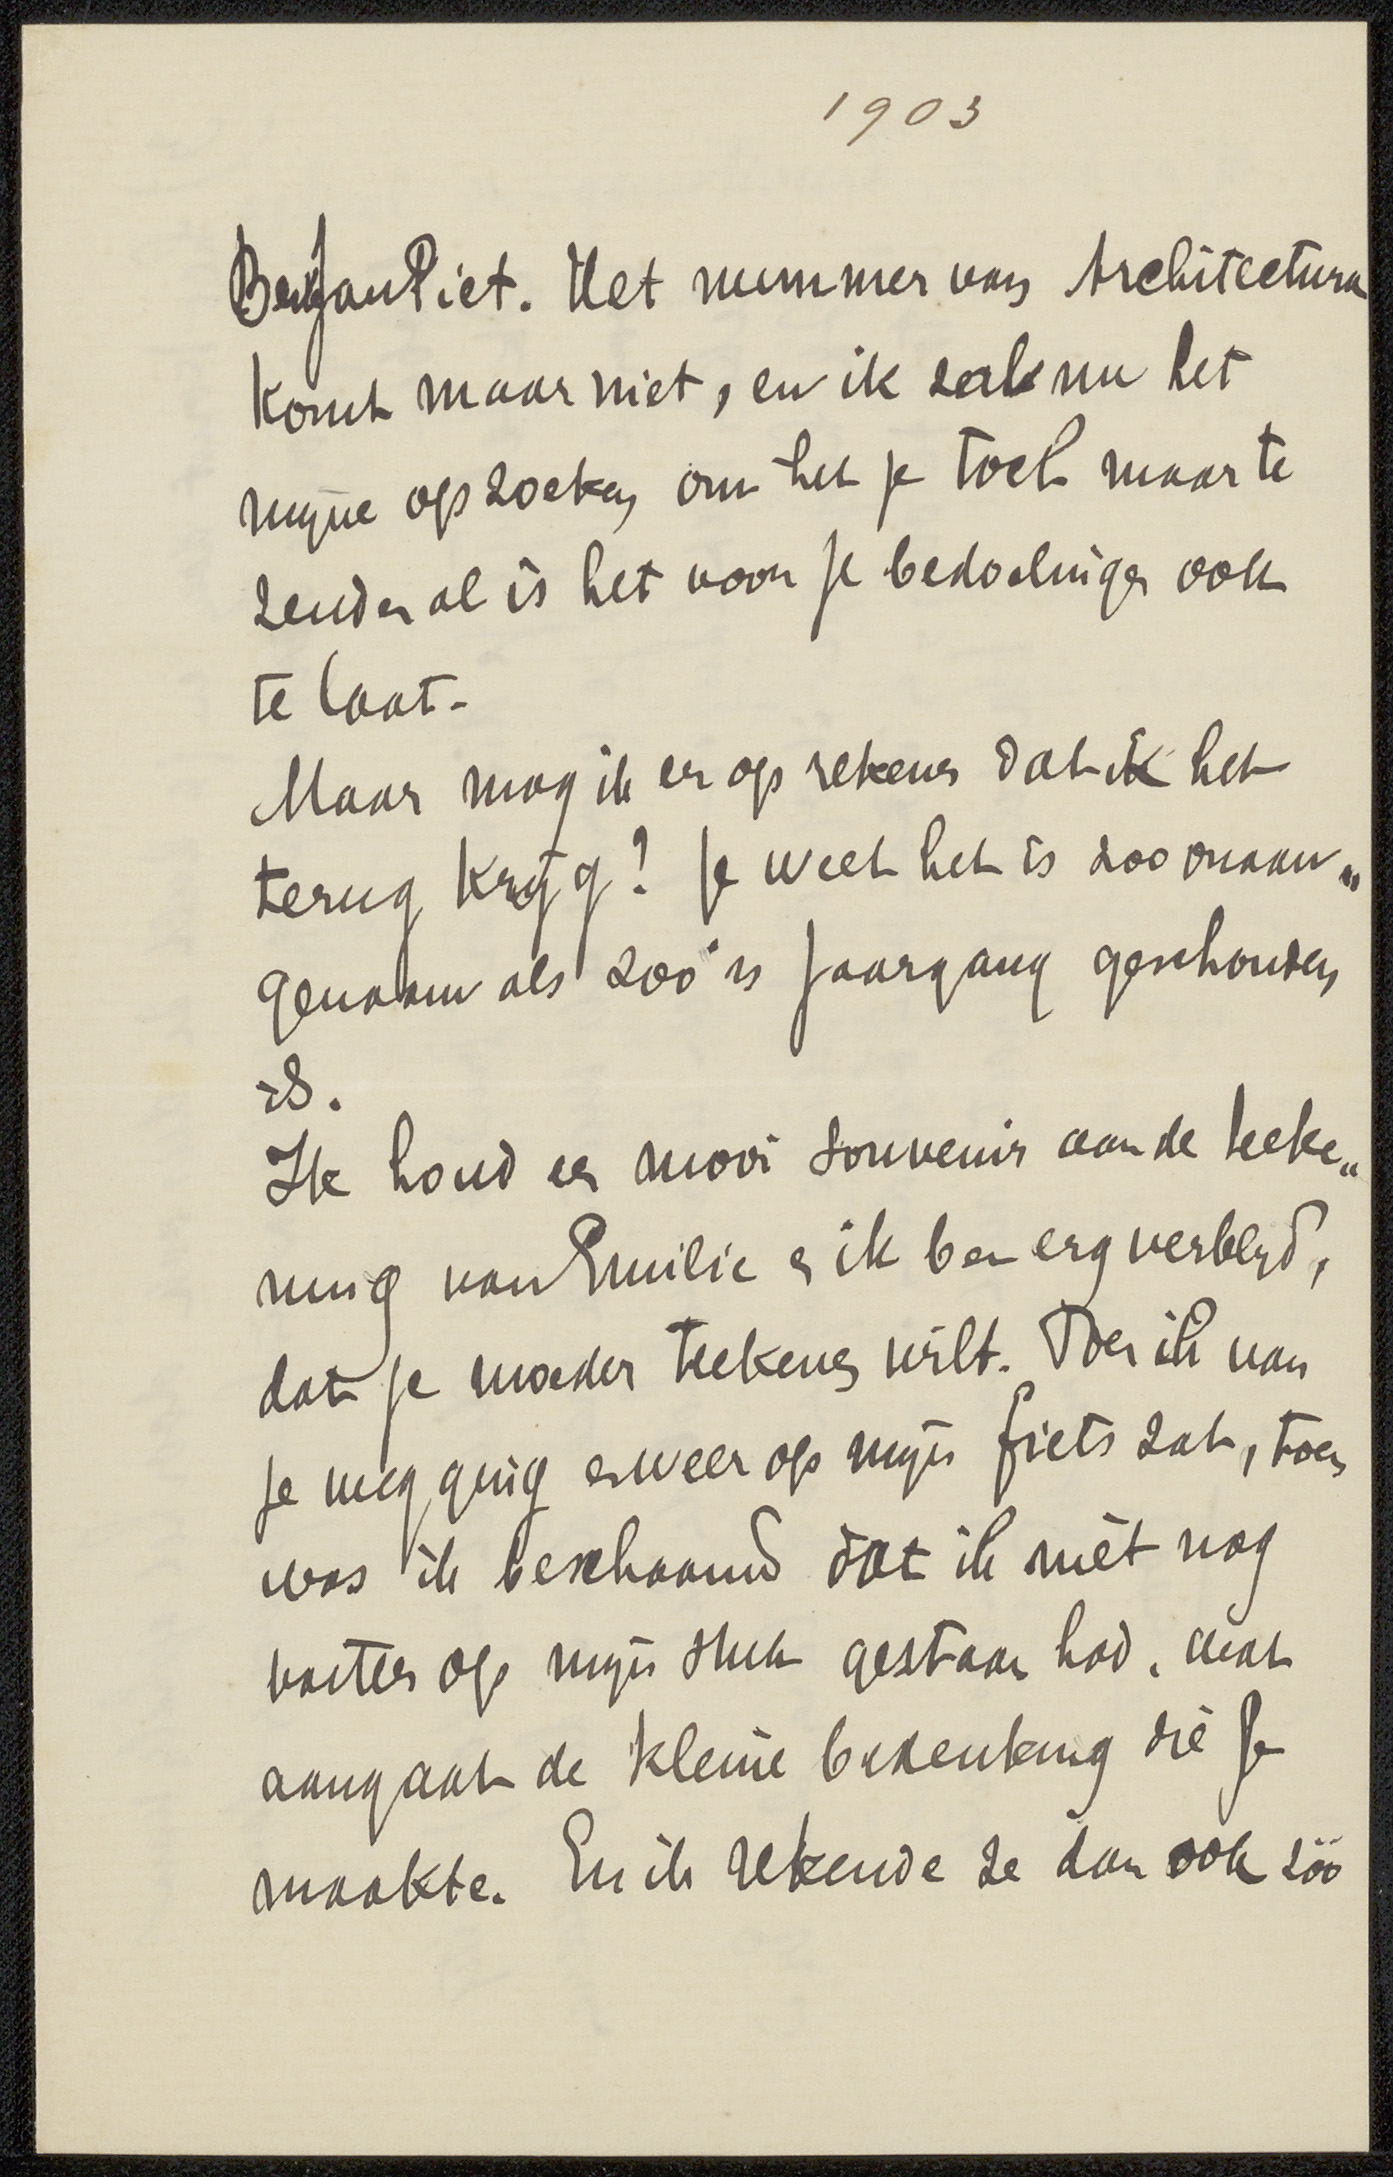 1903
Jan Piet. Het nummer van Architectura
komt maar niet, en ik zal nu het
mijne opzoeken om het je toch maar te
zenden al is het voor je bedoelingen ook
te laat.
Maar mag ik er op rekenen dat ik het
terug krijg? Je weet het is zoo onaan„
genaam als zoo'n jaargang geschonden
is.
Ik houd een mooi souvenir aan de teeke„
ning van Emilie en ik ben erg verblijd,
dat je moeder teekenen wilt. Toen ik van
je weg ging en weer op mijn fiets zat, toen
was ik beschaamd dat ik niet nog
vaster op mijn stuk gestaan had, wat
aangaat de kleine bedenking die je
maakte. En ik rekende ze dan ook zóó